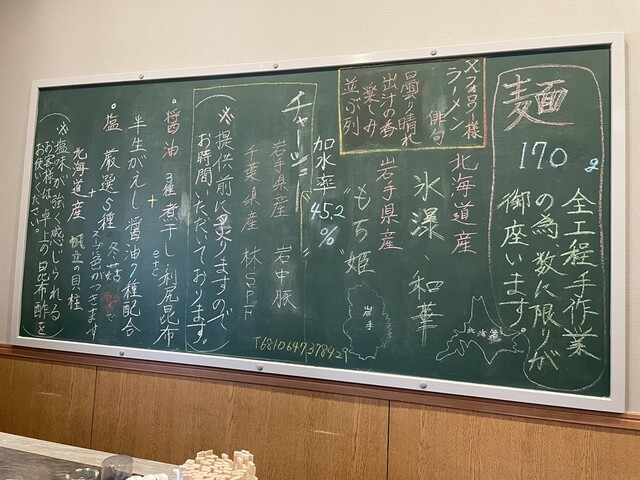 麺
170g
全工程手作業
の為、数に限りが
御座います。
Xフォロワー様
ラーメン 俳句
曇り晴れ
出汁の香
楽しみ
並ぶ列
北海道産
氷瀑、和華
岩手県産
"もち姫"
加水率
45.2
%
北海道
岩手
チャーシュー
岩手県産 岩中豚
千葉県産 林SPF
(※提供前に
ますので
お時間いただいております。)
T6810647378421
○醤油 3種煮干し利尻昆布
+ etc
半生がえし 醤油7種配合
○塩 厳選5種 冬姑
で
スープに色がつきます
+
北海道産 帆立の貝柱
(※塩味が強く感じられる
お客様は卓上の昆布酢を
お使いください。)